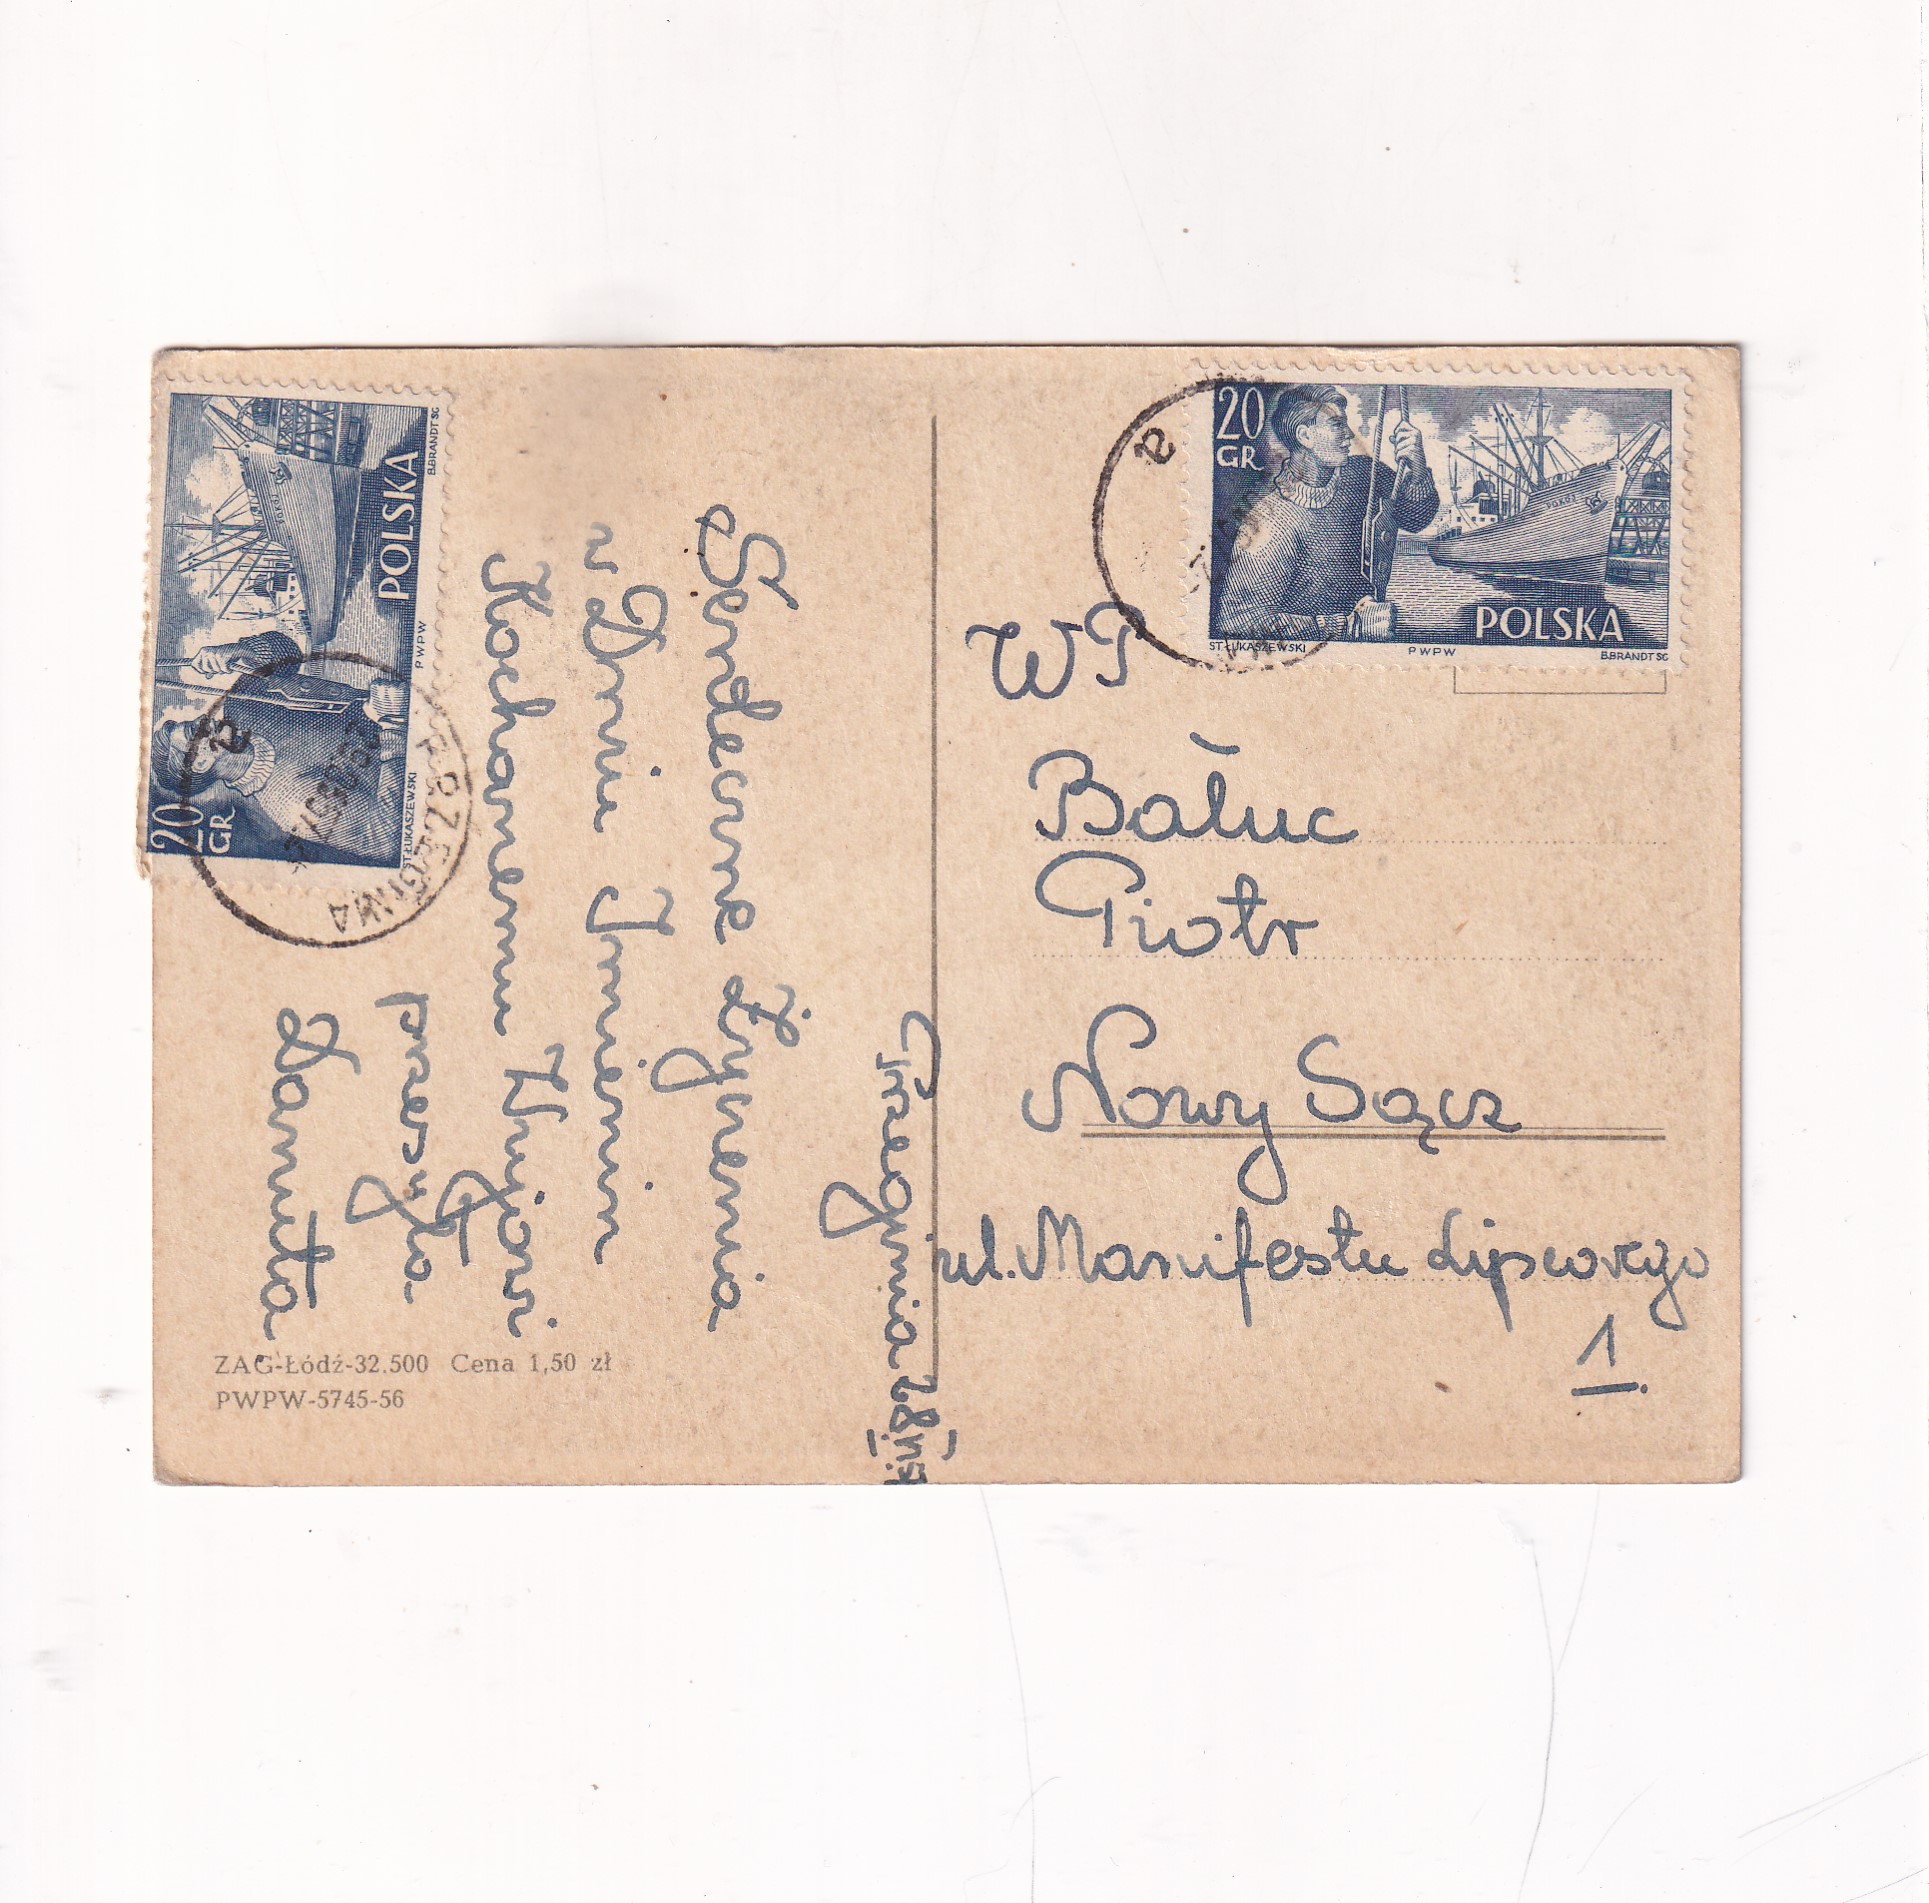 Przeginia 28.VI.57
Serdeczne Życzenia
w Dniu Imienin
Kochanemu Wujowi
przesyła
Danuta
ZAG-Łódź-32.500 Cena 1,50 zł
PWPW-5745-56
20
GR
POLSKA
ST.ŁUKASZEWSKI
PWPW
B.BRANDT SC
PRZEGINIA
20
GR
POLSKA
ST.ŁUKASZEWSKI
PWPW
B.BRANDT SC
WP
Bałuc
Piotr
Nowy Sącz
ul. Manifestu Lipcowego
1